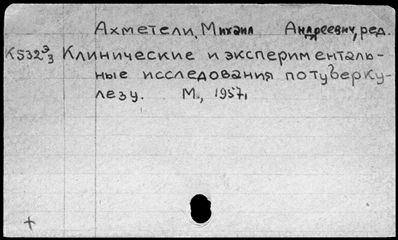 Ахметели, Михаил Андреевич, ред.
К532 э/3 Клинические и эксперименталь-
ные исследования по туберку-
лезу. М., 1957,
+